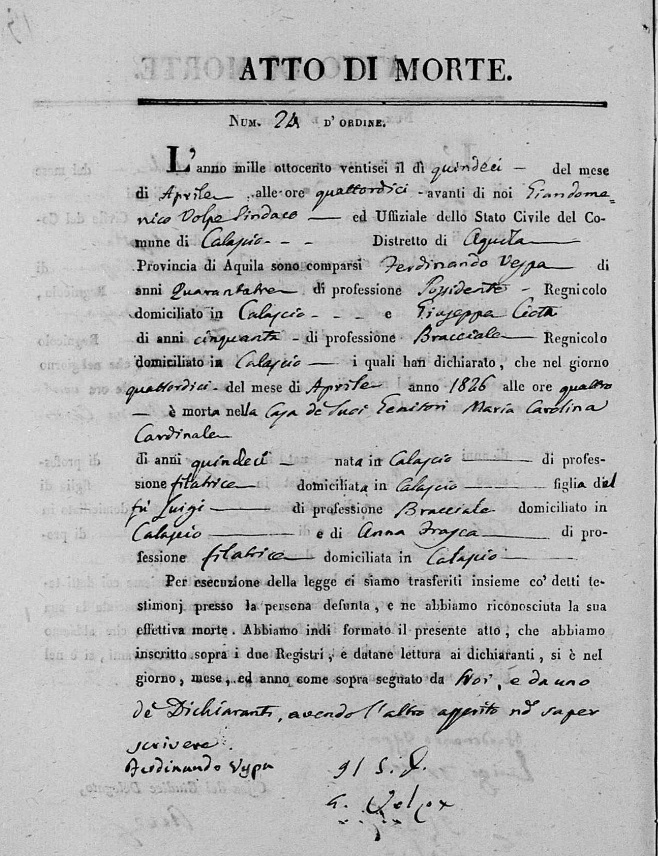 ATTO DI MORTE.
NUM. 24 D'ORDINE.
L'anno mille ottocento ventisei il dì quindeci — del mese
di Aprile — alle ore quattordici - avanti di noi Giandome=
nico Volpe Sindaco — ed Uffiziale dello Stato Civile del Co-
mune di Calascio - - - Distretto di Aquila —
Provincia di Aquila sono comparsi Ferdinando Vespa — di
anni Quarantatre di professione Possidente - Regnicolo
domiciliato in Calascio - - - - e Giuseppe Ciota
di anni cinquanta - di professione Bracciale - Regnicolo
domiciliato in Calascio — i quali han dichiarato, che nel giorno
quattordici - del mese di Aprile anno 1826 alle ore quattro
— è morta nella Casa de suoi Genitori Maria Carolina
Cardinale
di anni quindeci — nata in Calascio — di profes-
sione filatrice — domiciliata in Calascio — figlia del
fù Luigi — di professione Bracciale domiciliato in
Calascio — e di Anna Frasca — di pro-
fessione filatrice domiciliata in Calascio —
Per esecuzione della legge ci siamo trasferiti insieme co' detti te-
stimonj presso la persona defunta, e ne abbiamo riconosciuta la sua
effettiva morte. Abbiamo indi formato il presente atto, che abbiamo
inscritto sopra i due Registri, e datane lettura ai dichiaranti, si è nel
giorno, mese, ed anno come sopra segnato da Noi, e da uno
de Dichiaranti, avendo l'altro asserito nō saper
scrivere.
Ferdinando Vespa